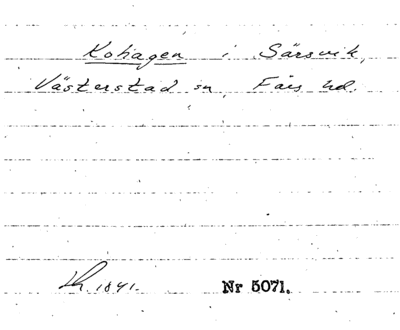 Kohagen i Särsvik,
Västerstad sn, Färs hd.
Lk. 1841. Nr 5071.